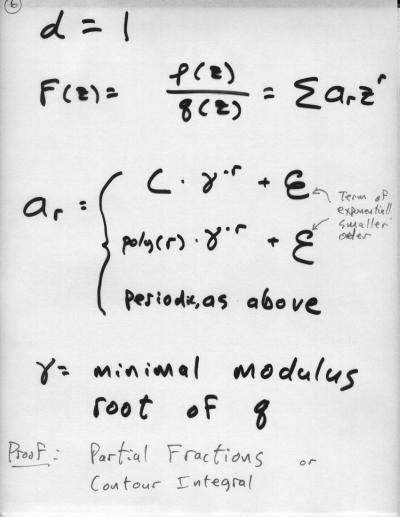 6
d = 1
F(z) = p(z)/q(z) = Σ a_r z^r
a_r = { C · γ^-r + ε
poly(r) · γ^-r + ε
periodic, as above
Term of
exponentially
smaller
order
γ = minimal modulus
root of q
Proof: Partial Fractions or
Contour Integral